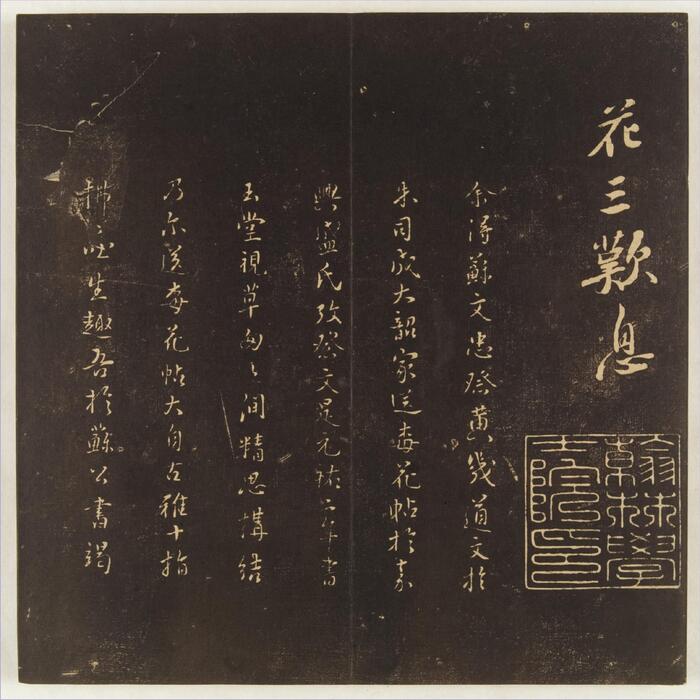 花三歎息
翰林學士院印
余得蘇文忠祭黃幾道文於
朱司成大韶家送春花帖於嘉
興盛氏攷祭文是元祐二年書
玉堂視草匆匆間精思構結
乃尔送春花帖大自古雅十指
拂拂生趣吾於蘇公書竭